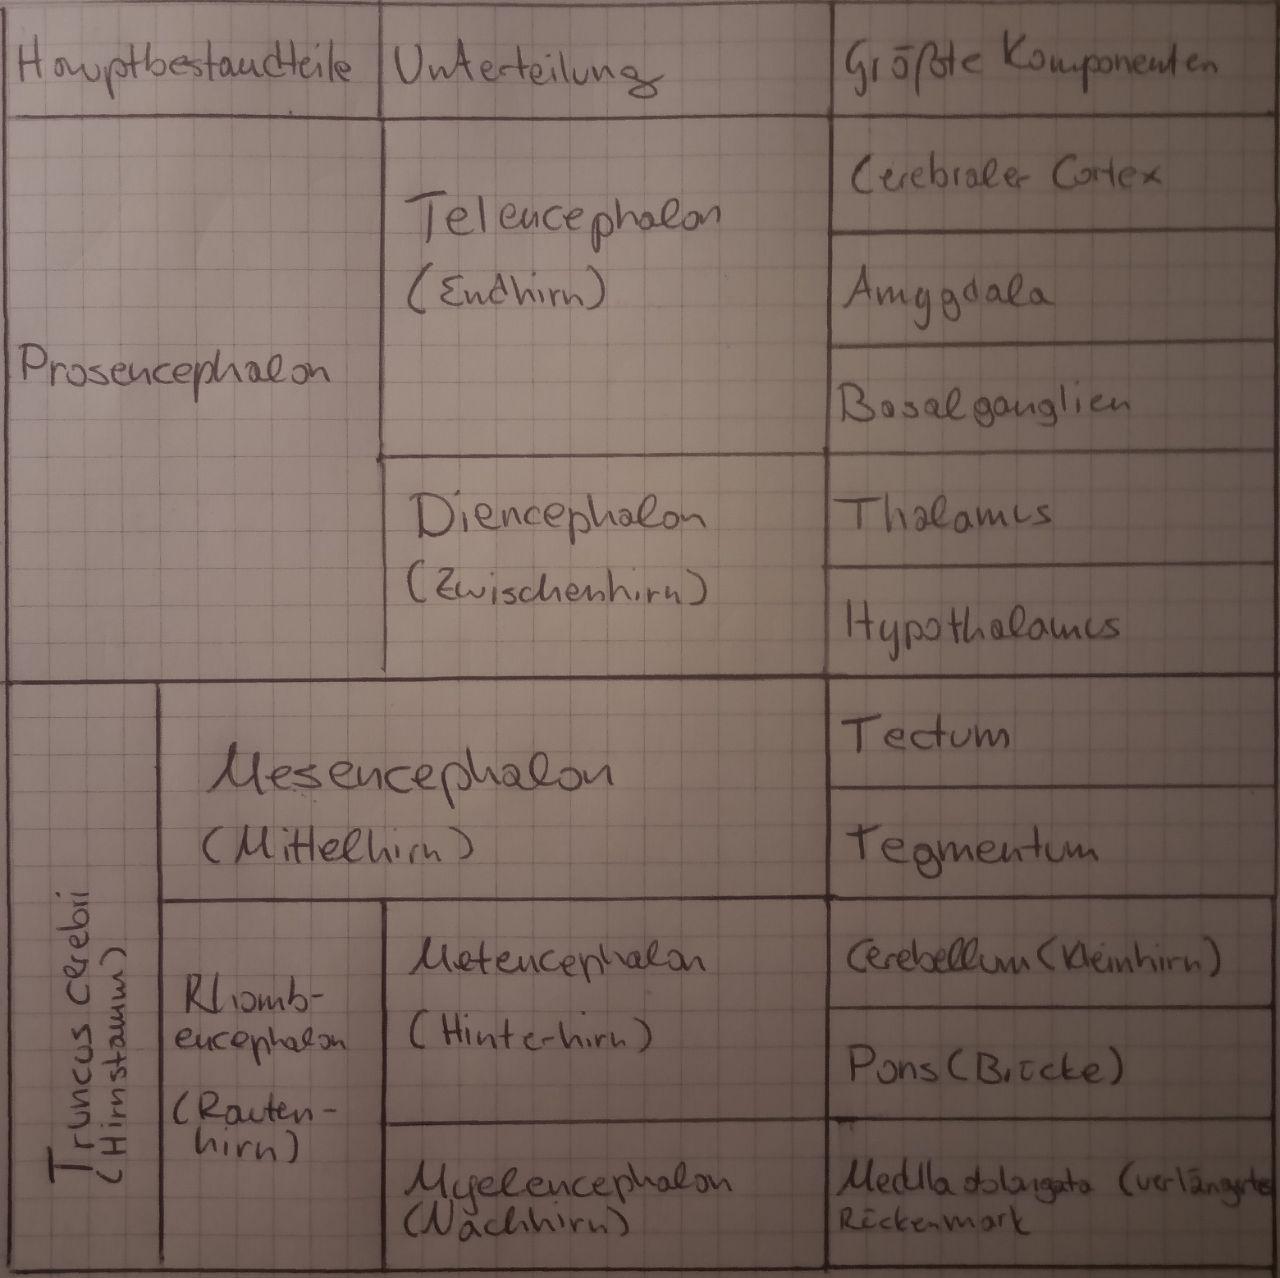 Hauptbestandteile
Unterteilung
Größte Komponenten
Prosencephalon
Telencephalon
(Endhirn)
Cerebraler Cortex
Amygdala
Basalganglien
Diencephalon
(Zwischenhirn)
Thalamus
Hypothalamus
Truncus cerebri
(Hirnstamm)
Mesencephalon
(Mittelhirn)
Tectum
Tegmentum
Rhomb-
encephalon
(Rauten-
hirn)
Metencephalon
(Hinterhirn)
Cerebellum (Kleinhirn)
Pons (Brücke)
Myelencephalon
(Nachhirn)
Medulla oblongata (verlängertes
Rückenmark